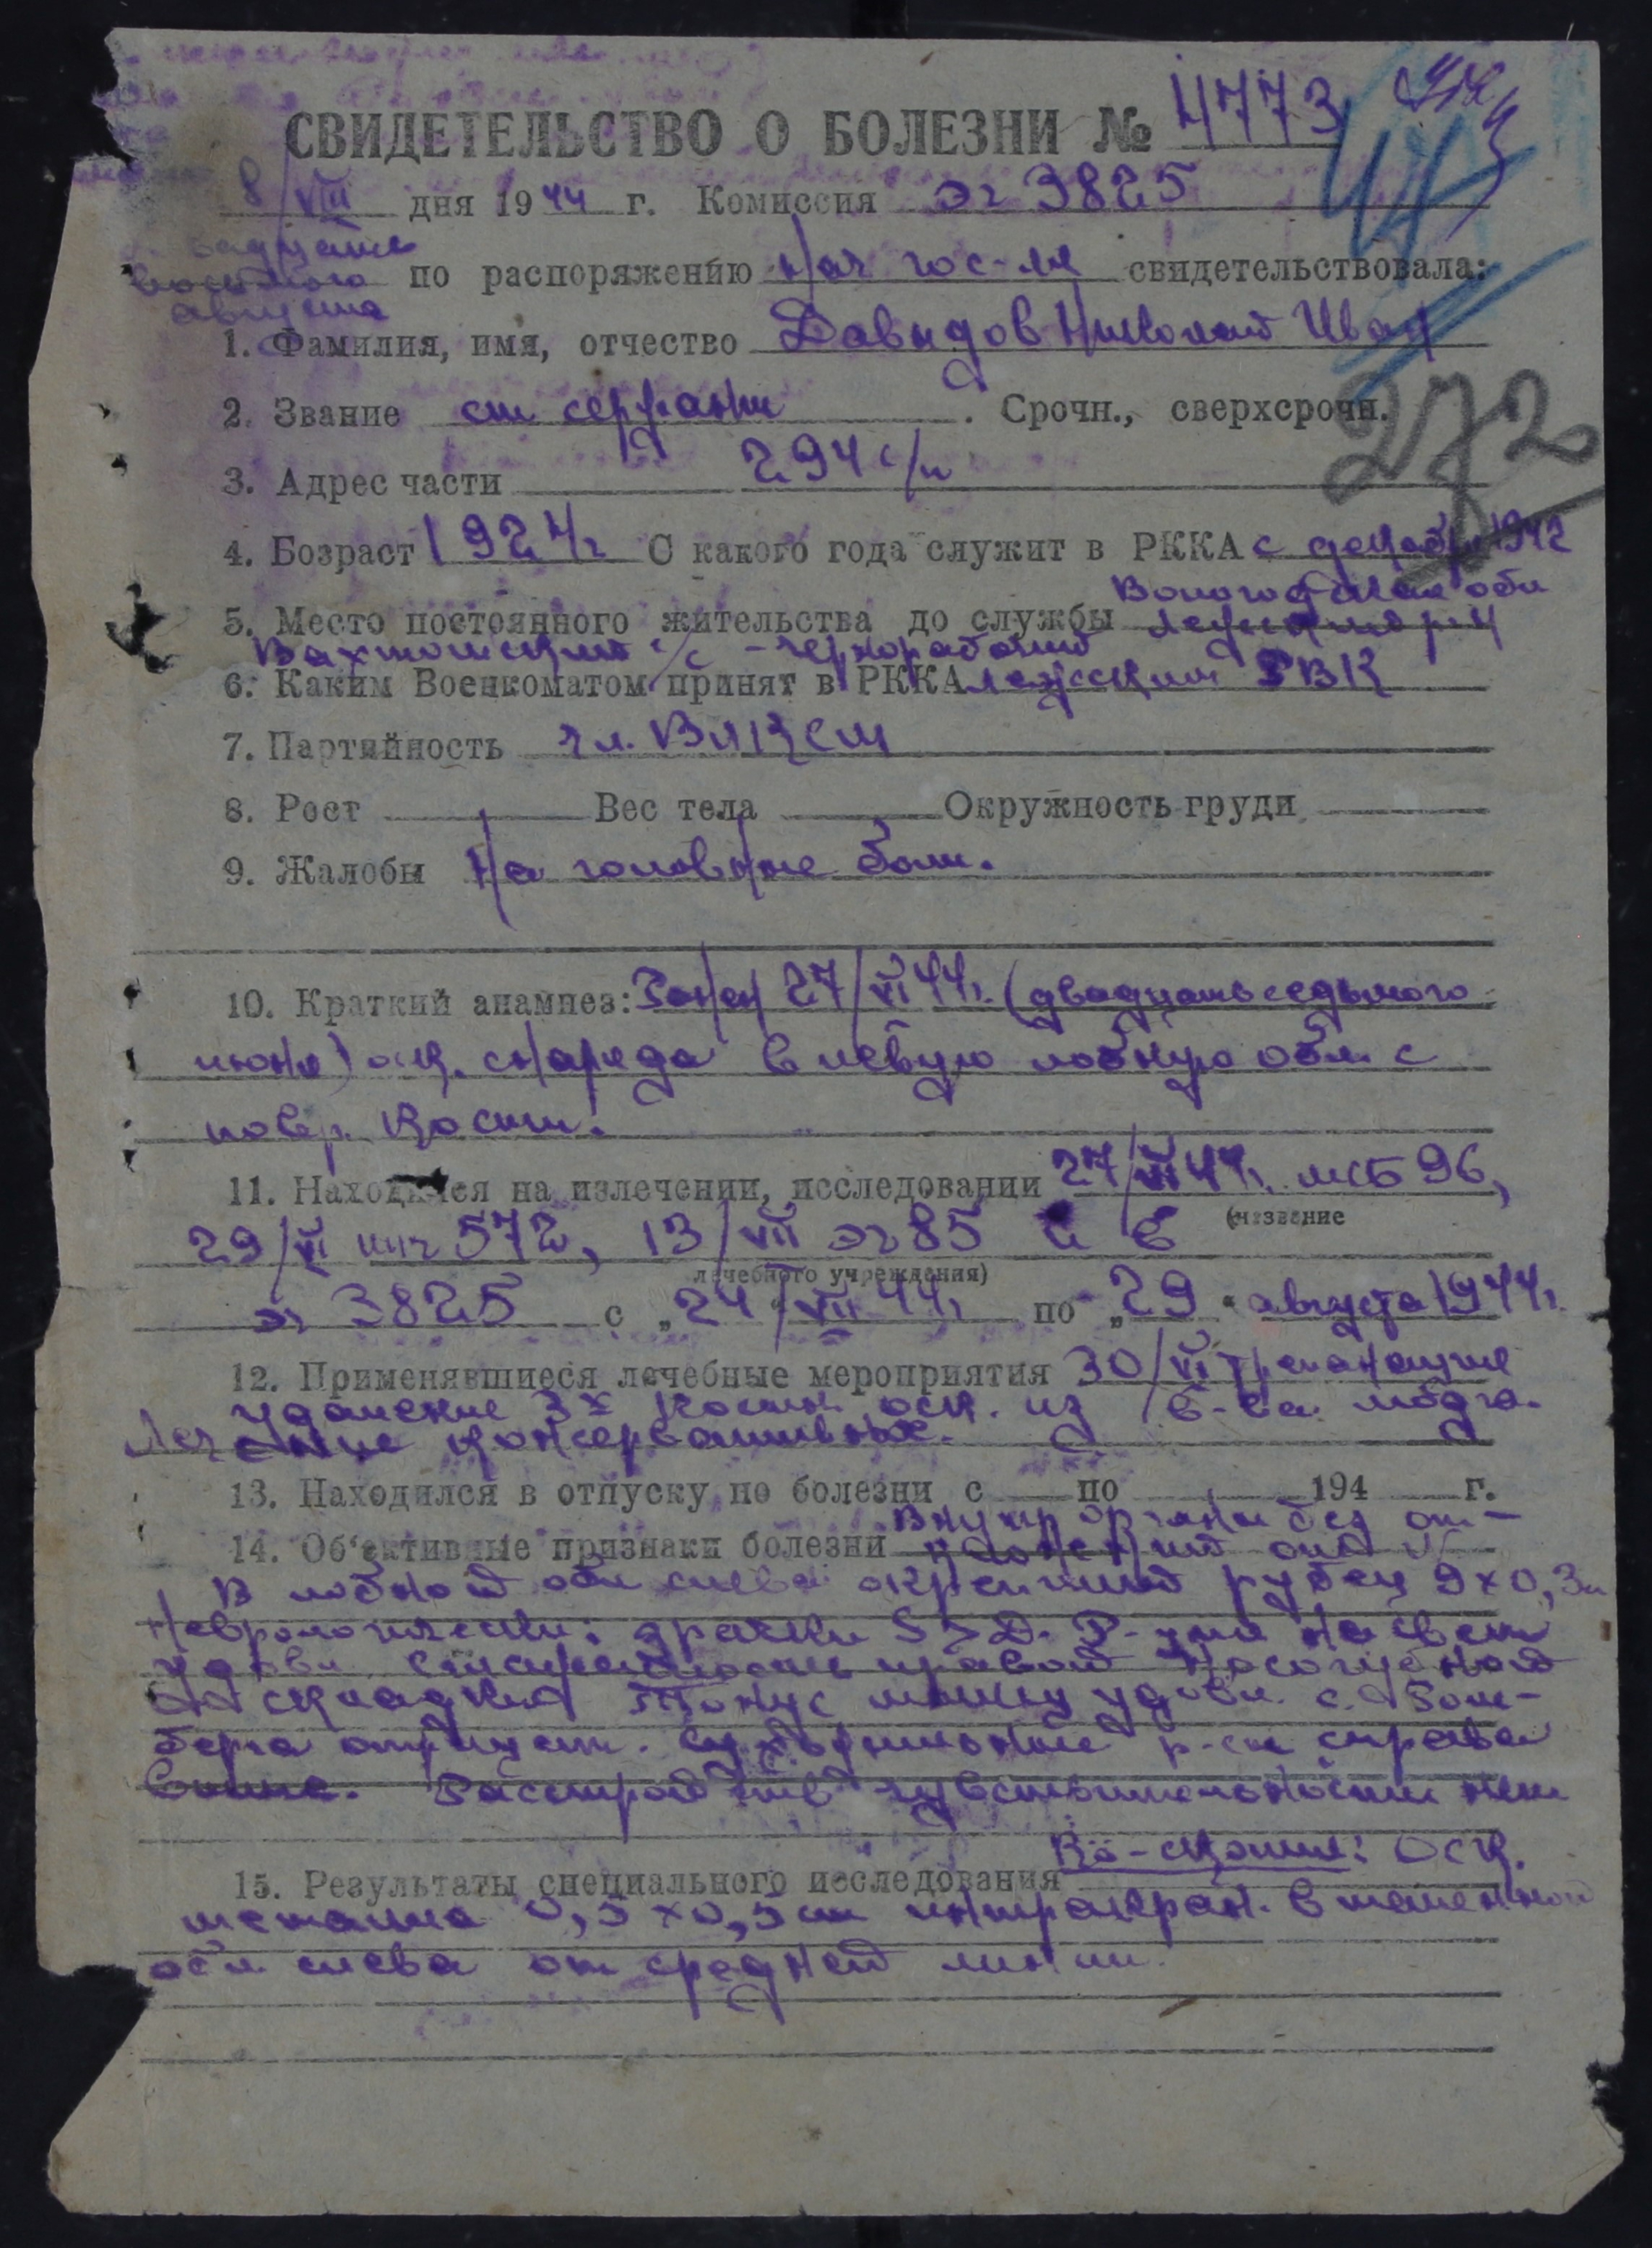 СВИДЕТЕЛЬСТВО О БОЛЕЗНИ № 4773
8/VIII дня 1944 г. Комиссия эг 3825
августа
по распоряжению нач гос-ля свидетельствовала:
1. Фамилия, имя, отчество Давыдов Николай Иван
2. Звание ст сержант. Срочн., сверхсрочн.
272
3. Адрес части 294 с/п
4. Возраст 1924 г С какого года служит в РККА с декабр 1942
Вологодская обл
5. Место постоянного жительства до службы
с/с - чернорабочий
6. Каким Военкоматом принят в РККА Лежским РВК
7. Партийность чл. ВЛКСМ
8. Рост Вес тела Окружность груди
9. Жалобы На головные боли.
10. Краткий анамнез: Ранен 27/VI 44г. (двадцать седьмого
июня) оск. снаряда в левую лобную обл. с
повр. кости.
11. Находился на излечении, исследовании 27/VI 44г. мсб 96,
(название
29/VI ппг 572, 13/VII эг 85 и в
лечебного учреждения)
эг 3825 с „24/VII 44г по „29" августа 1944г.
12. Применявшиеся лечебные мероприятия 30/VI трепанация
удаление 3х костн. оск. из в-ва мозга.
Лечение консервативное.
13. Находился в отпуску по болезни с по 194 г.
Внутр органы без от-
14. Об'ективные признаки болезни
В лобной обл слева окрепший рубец 9х0,3см
Неврологически: зрачки S>D. Р-ция на свет
удовл. сглаженность правой носогубной
складки Тонус мышц удовл. с. Ром-
берга отрицат. Сухожильные р-сы справа
выше. Расстройств чувствительности нет
15. Результаты специального исследования Rö-скопия: Оск.
металла 0,5х0,5см интракран. в теменной
обл. слева от средней линии.